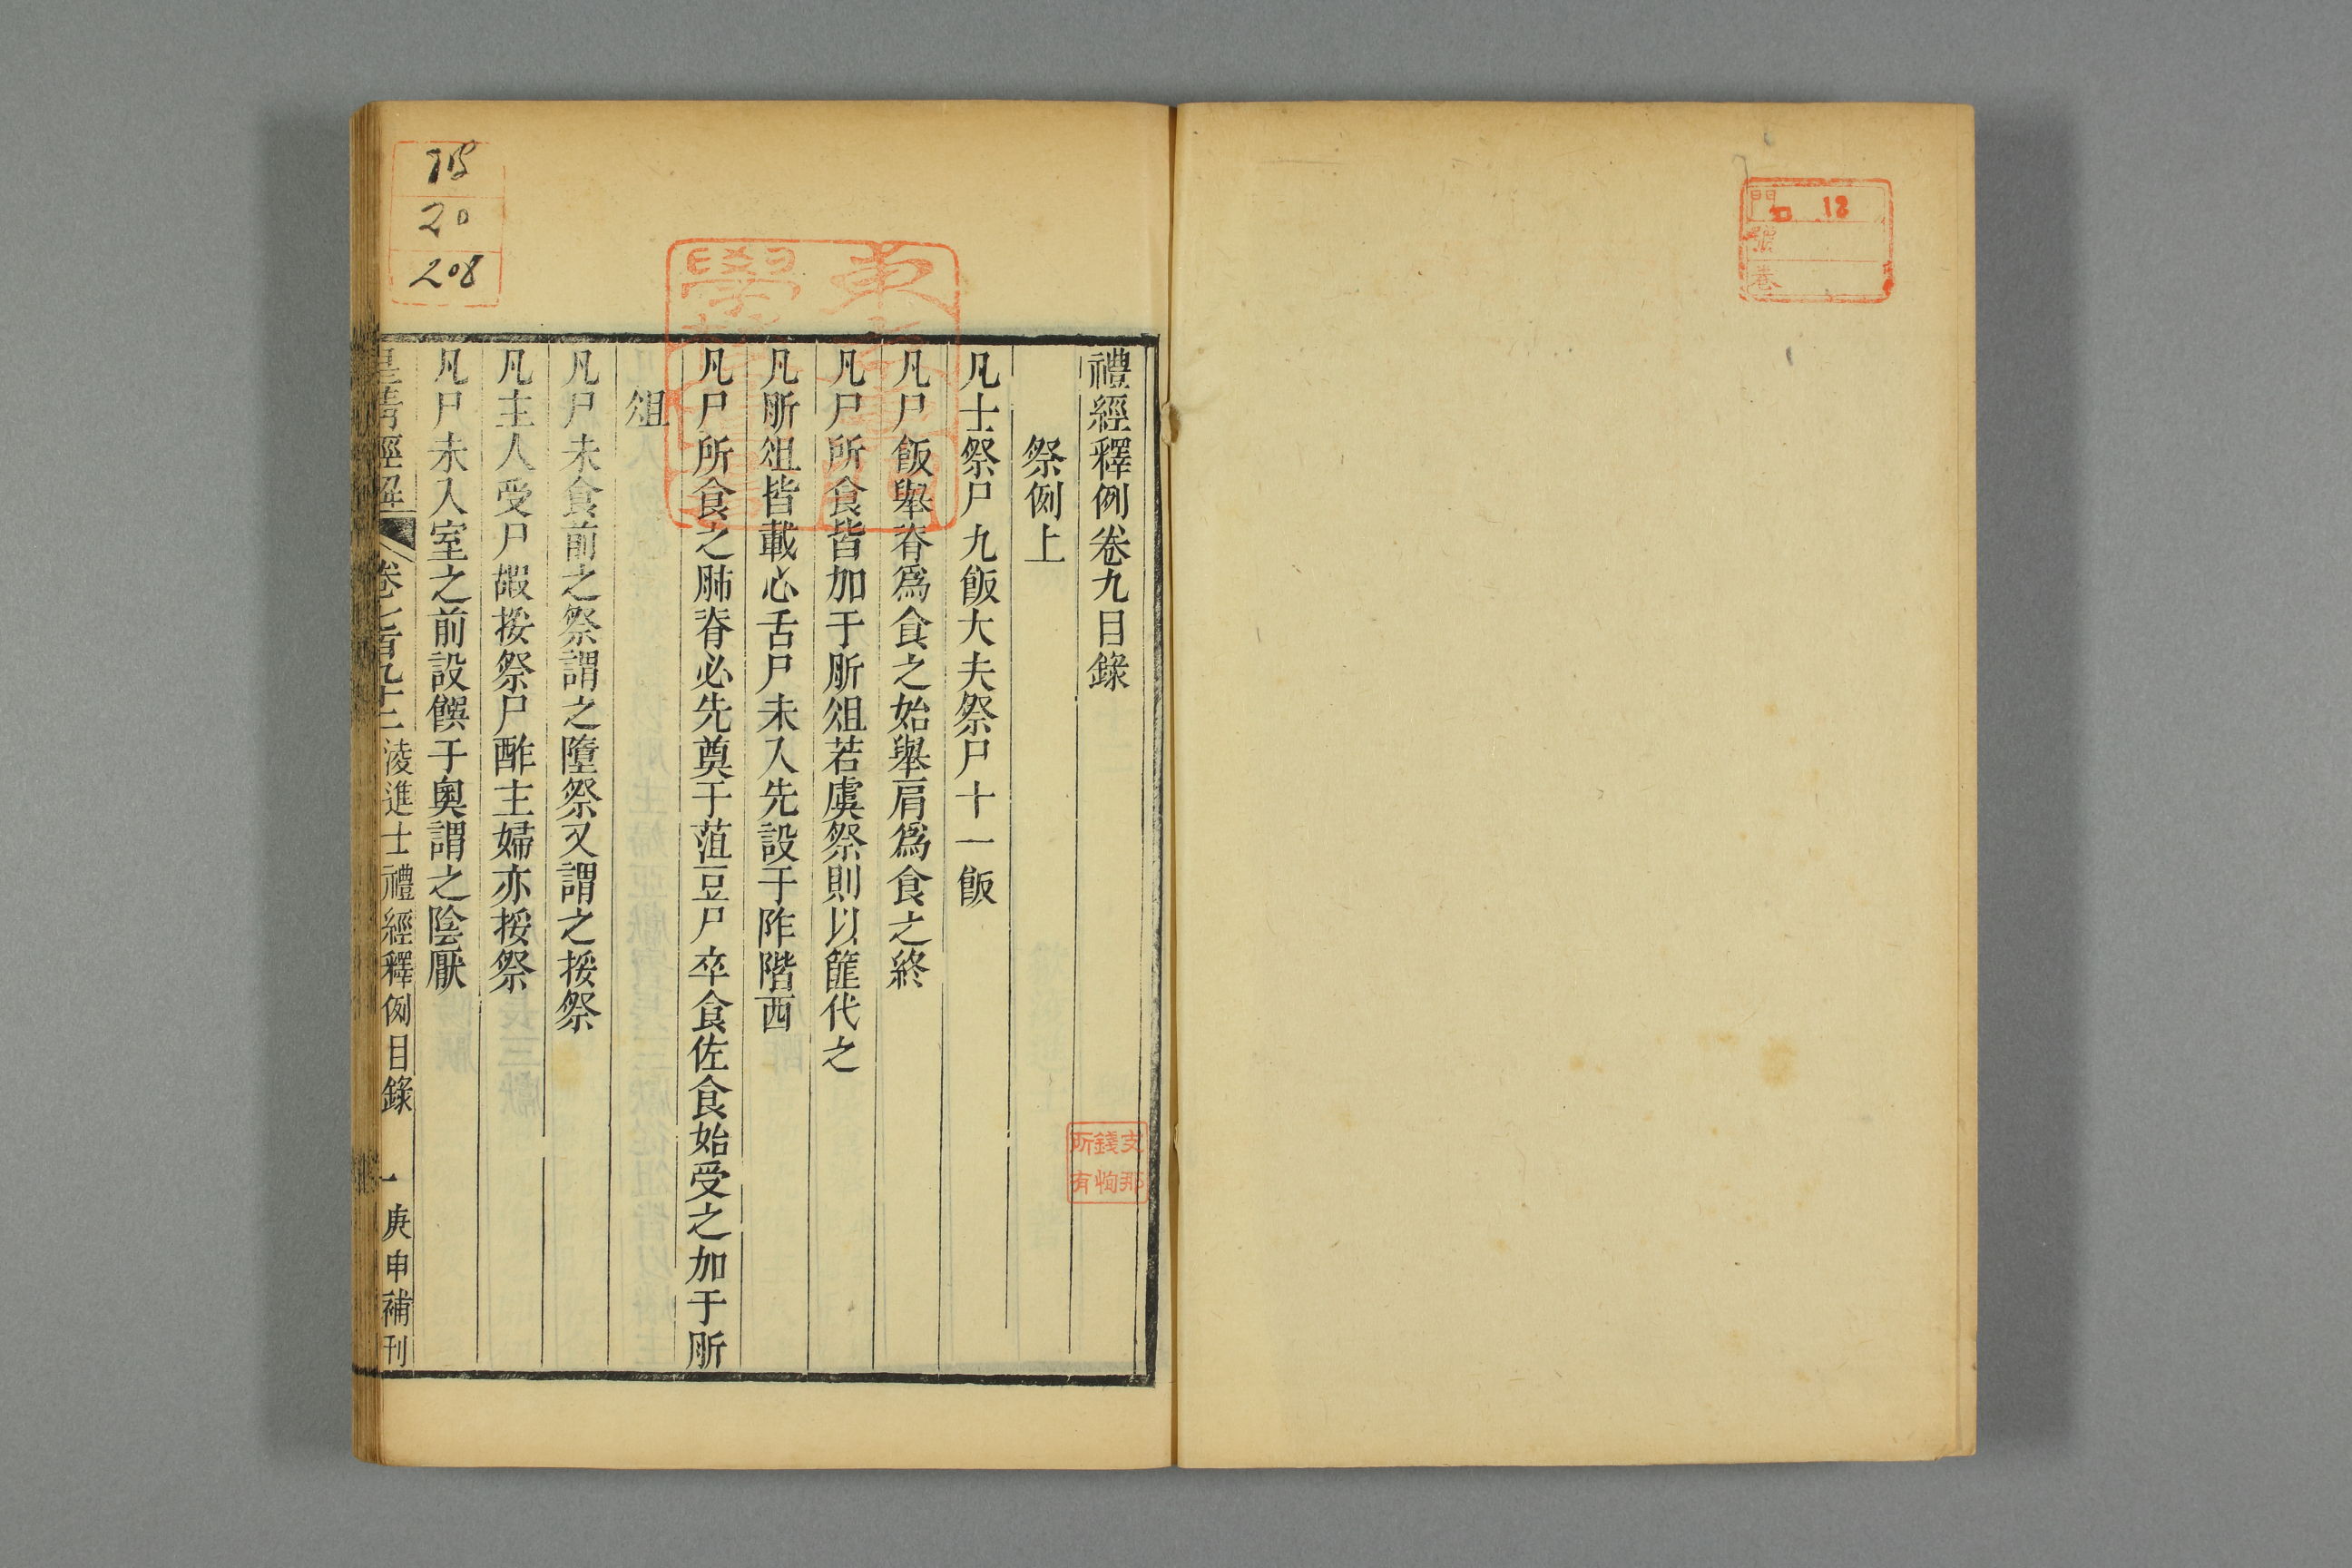 門 12
號
卷
禮經釋例卷九目錄
祭例上
凡士祭尸九飯大夫祭尸十一飯
凡尸飯舉脊爲食之始舉肩爲食之終
凡尸所食皆加于肵俎若虞祭則以篚代之
凡肵俎皆載心舌尸未入先設于阼階西
凡尸所食之肺脊必先奠于菹豆尸卒食佐食始受之加于肵
俎
凡尸未食前之祭謂之墮祭又謂之挼祭
凡主人受尸嘏挼祭尸酢主婦亦挼祭
凡尸未入室之前設饌于奧謂之陰厭
皇清經解 卷七百九十二 淩進士禮經釋例目錄 一 庚申補刊
支那
錢恂
所有
20
208